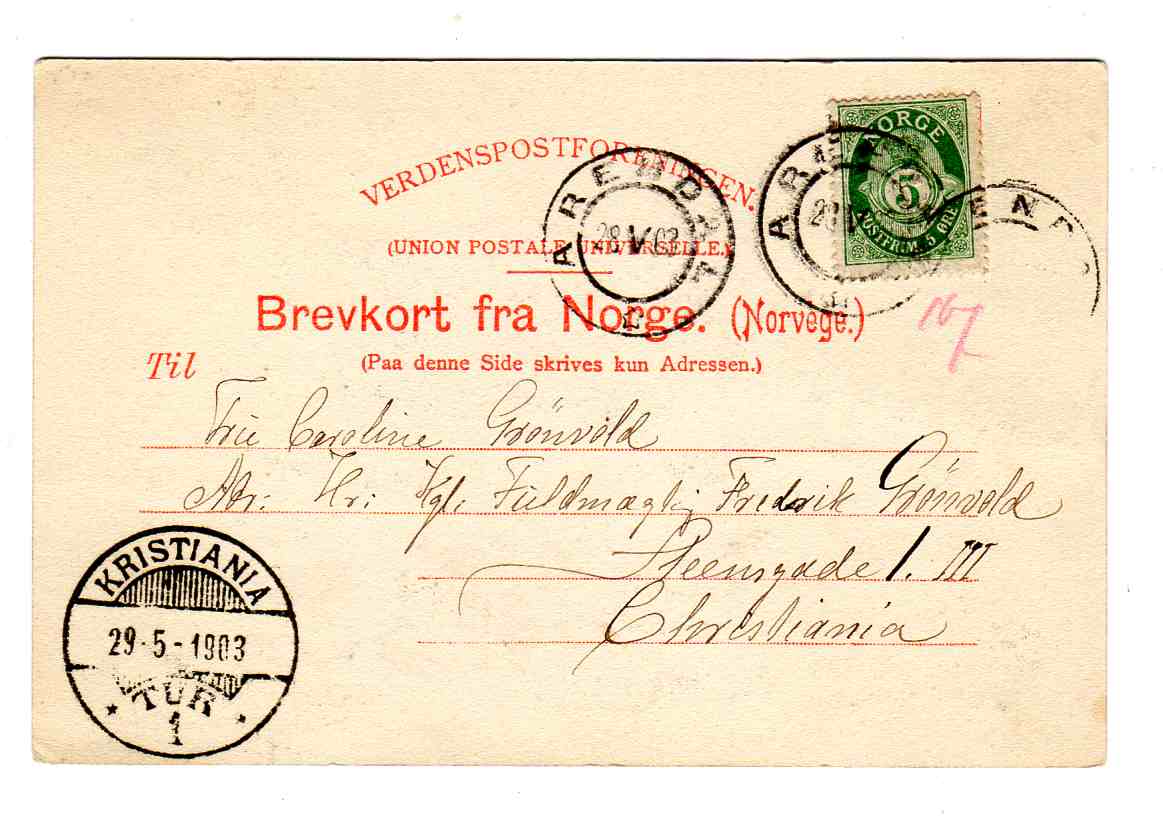 VERDENSPOSTFORENINGEN.
(UNION POSTALE UNIVERSELLE.)
Brevkort fra Norge. (Norvege.)
(Paa denne Side skrives kun Adressen.)
Til
NORGE
5
POSTFRIM. 5 ØRE
ARENDAL
28 V 03
ARE
28 V
END
Frü Caroline Grönvold
Adr. Hr: Kgl. Füldmægtig Fredrik Grönvold
Steensgade 1. III
Christiania
KRISTIANIA
29-5-1903
TUR
1